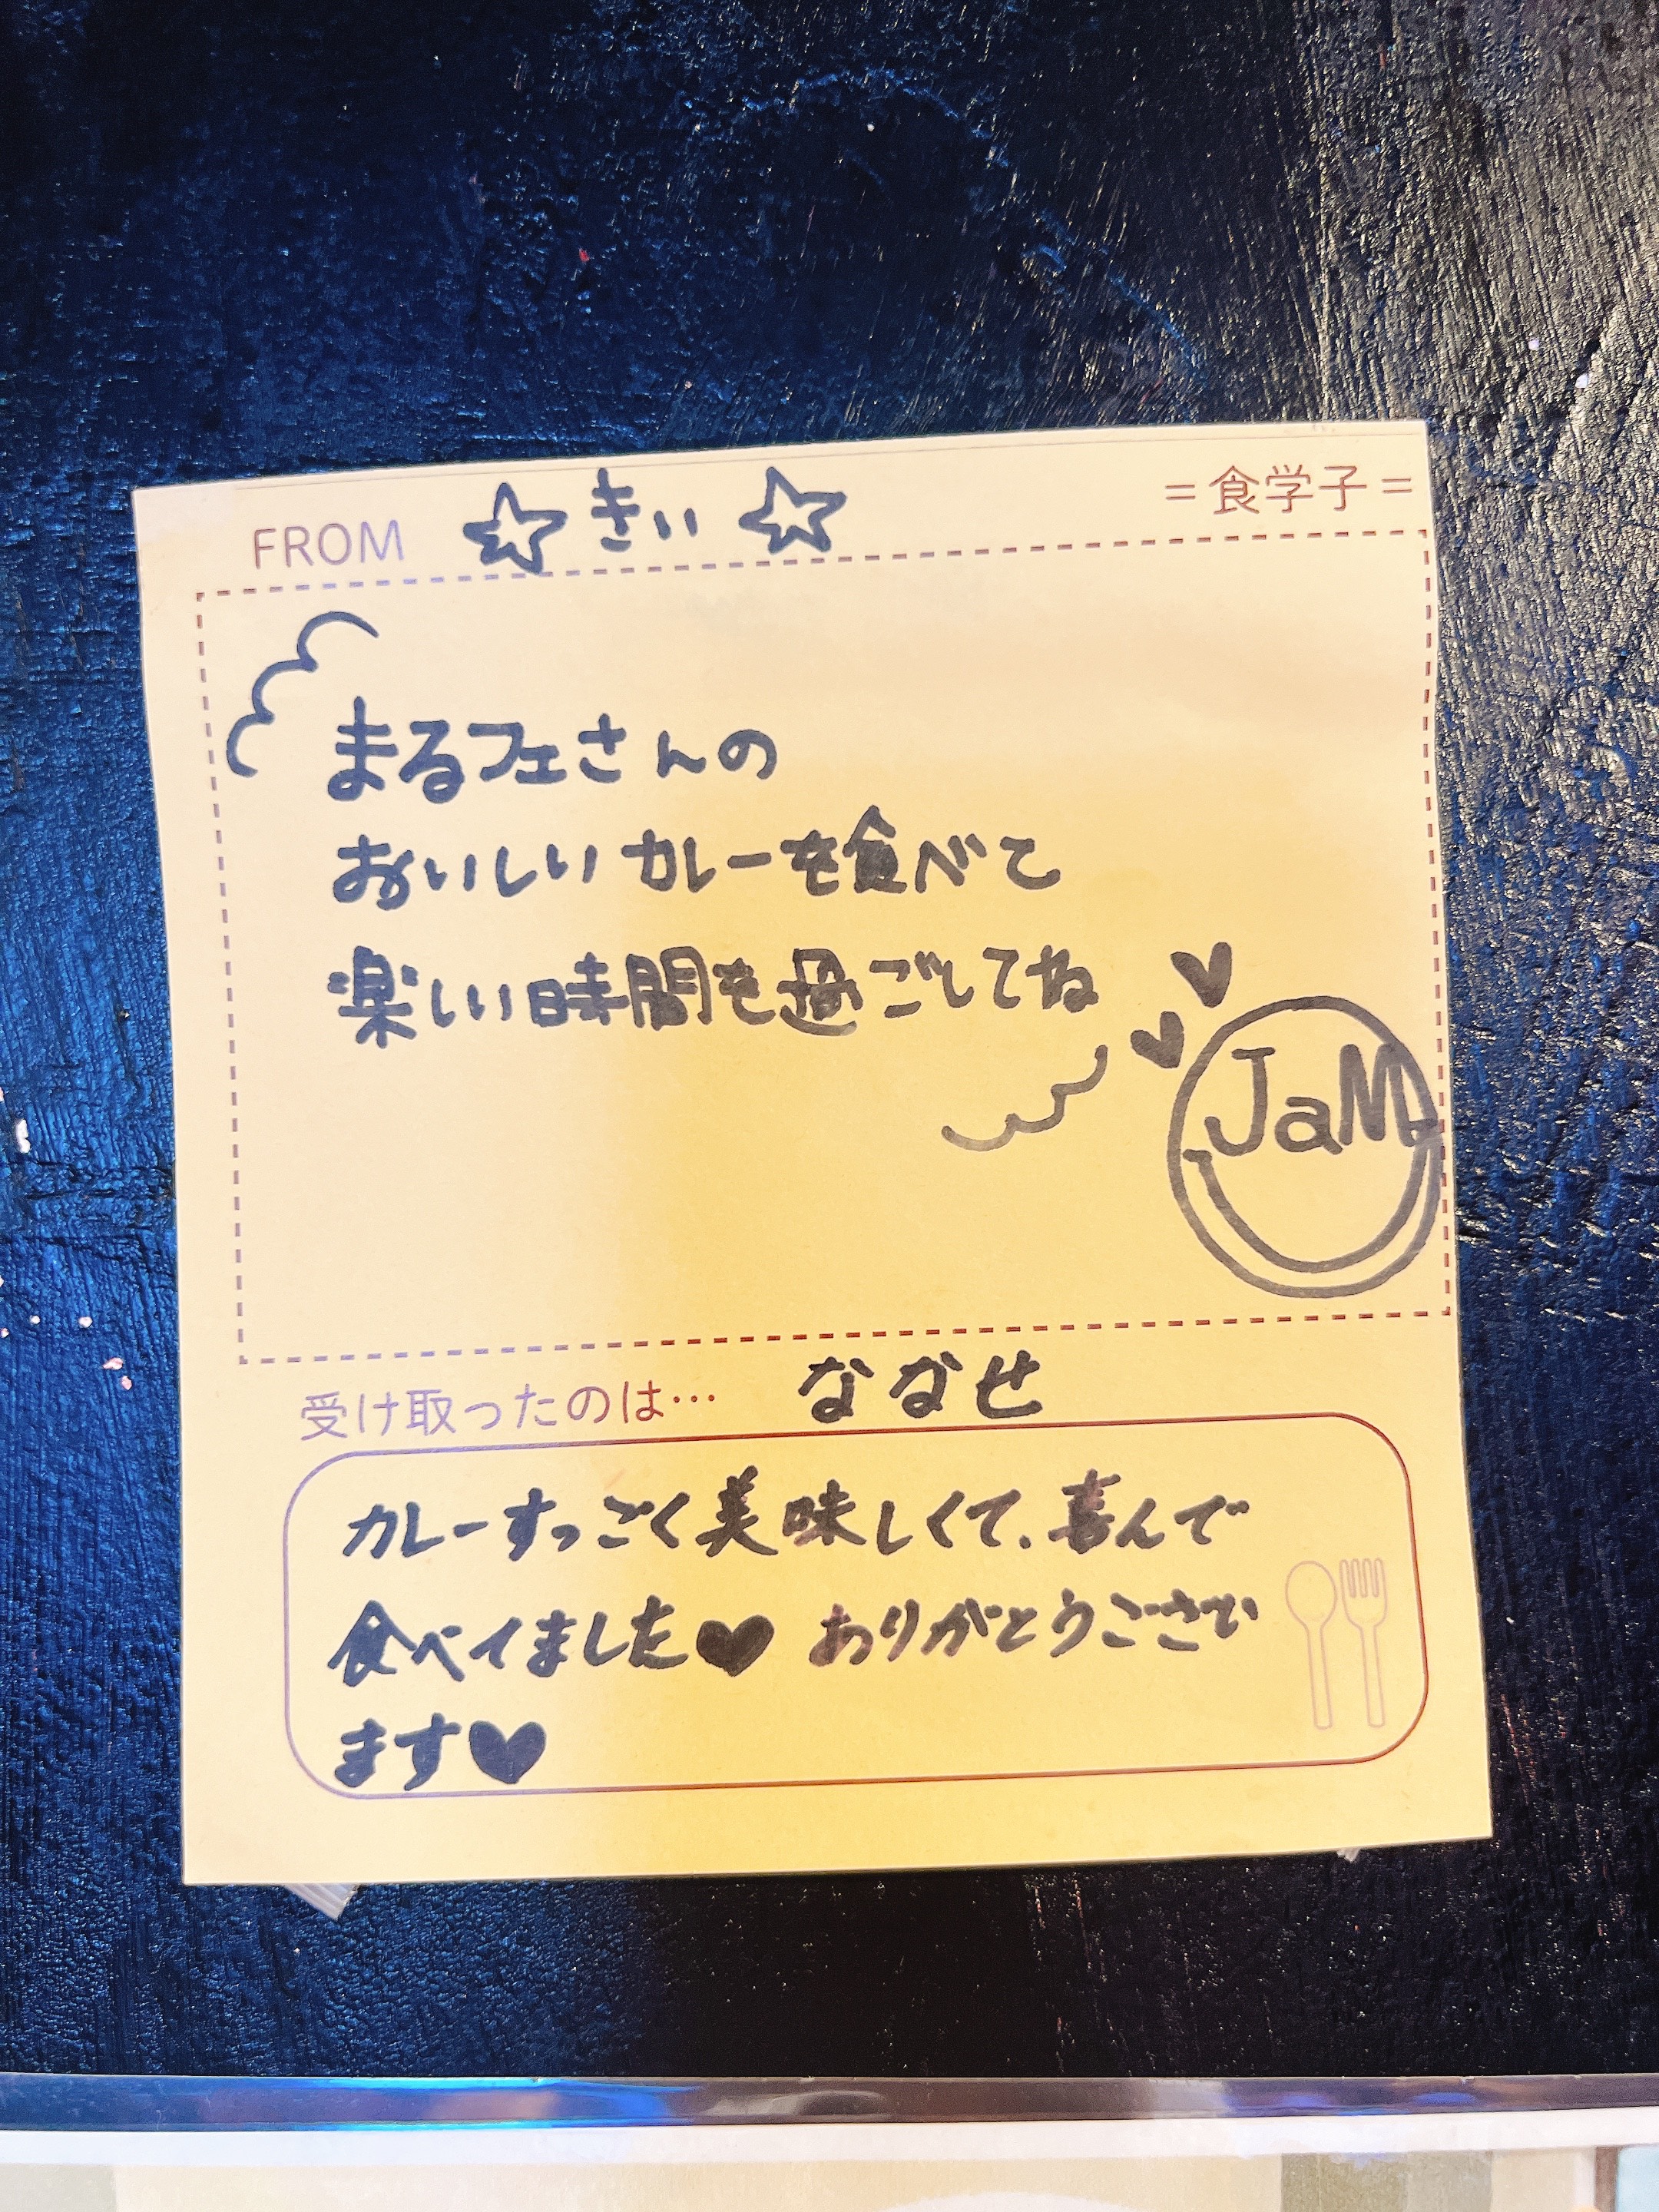 =食学子=
FROM ☆きい☆
まるフェさんの
おいしいカレーを食べて
楽しい時間を過ごしてね
JaM
受け取ったのは… ななせ
カレーすっごく美味しくて、喜んで
食べてました♥ ありがとうござい
ます♥